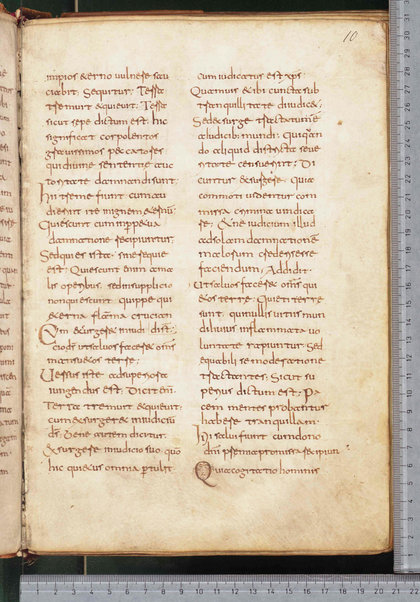 10
impios æterno vulnere sau
ciabit. Sequitur. Terra
tremuit & quieuit. Terra
sicut sepe dictum est hic
significat corpolentos
grauissimos peccatores
qui diuine sententie auc
toritate damnandi sunt.
Hi treme fiunt cum au
dierint ite in ignem æternū
Quiescunt cum in p&ua
damnatione recipiuntur.
Sed quies ista sine requie
est. Quiescunt enim a ma
lis operibus. sed in supplicio
non quiescunt. quippe qui
æterna flāma crucian
Cum exurger& in iudi
cio dſ. ut saluos facer& om̅s
mansu&os terre.
Uersus iste ad superiora
iungendus est. Dicit enī
Terra tremuit & quieuit.
cum exurger& in iudiciū
dſ. Bene autem dicitur.
Exurgere in iudicio suo quo
hic qui&us omnia p&tulit
cum iudicatus est xp̅s.
Quamuis & ibi cuncta sub
tranquillitate diiudic&.
Sed exurge tractatum est
ad iudicis mundi. qui quan
do aliquid districta seue
ritate censuerint. Di
cuntur exurgere. quia
commoti uidentur com
missa crimina uindica
re. Et ne iudicium illud
ad solam damnationē
malorum crederesse
faciendum. Addidit.
Ut saluos facer& om̅s qui
&os terre. Quieti terre
sunt. qui nullis uitiis mun
di huius inflammata uo
luntate rapiuntur. Sed
equabili se moderatione
tractantes. Sicut su
perius dictum est. Pa
cem mentis probantur
habere tranquillam.
Hi salui fiunt cum dono
dn̅i premia promissa recipiun
Qui a cogitatio hominis